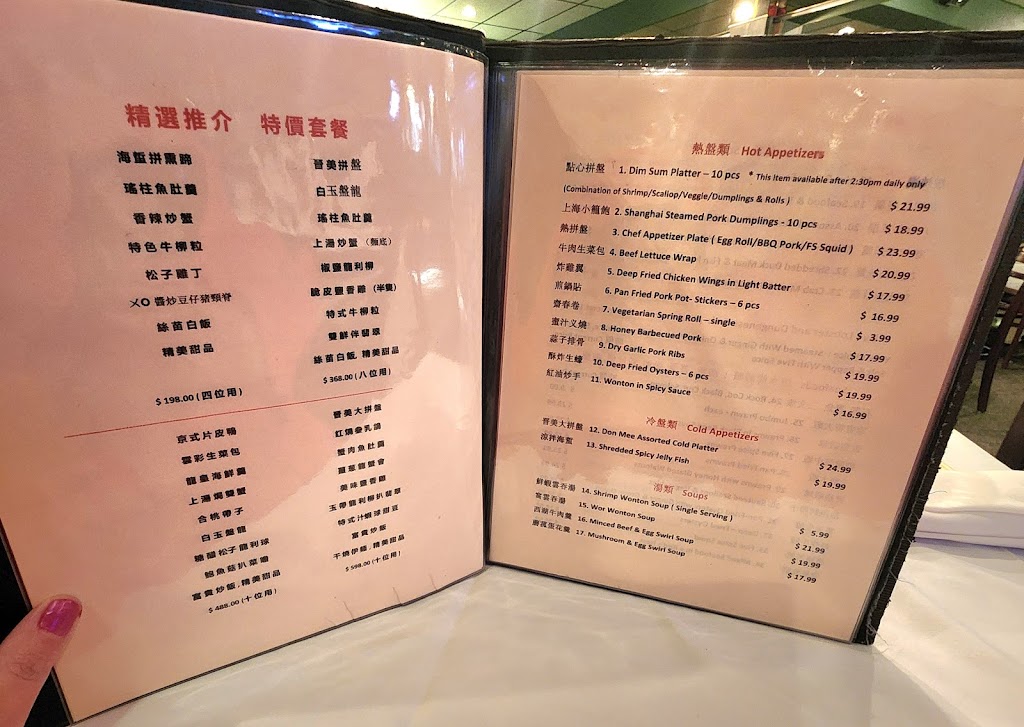 精選推介 特價套餐
海蜇拼熏蹄
瑤柱魚肚羹
香辣炒蟹
特色牛柳粒
松子雞丁
XO 醬炒豆仔豬頸脊
絲苗白飯
精美甜品
$ 198.00 (四位用)
晉美拼盤
白玉盤龍
瑤柱魚肚羹
上湯炒蟹 (麵底)
椒鹽龍利柳
脆皮鹽香雞 (半隻)
特式牛柳粒
雙鮮伴翡翠
絲苗白飯, 精美甜品
$ 368.00 (八位用)
京式片皮鴨
雲彩生菜包
龍皇海鮮羹
上湯焗雙蟹
合桃帶子
白玉盤龍
糖醋松子龍利球
鮑魚菇扒菜膽
富貴炒飯, 精美甜品
$ 488.00 (十位用)
晉美大拼盤
紅燒叁乳鴿
蟹肉魚肚羹
薑蔥龍蟹會
美味鹽香雞
玉帶龍利柳扒翡翠
特式汁蝦球甜豆
富貴炒飯
干燒伊麵, 精美甜品
$ 598.00 (十位用)
熱盤類 Hot Appetizers
點心拼盤 1. Dim Sum Platter – 10 pcs * This item available after 2:30pm daily only
(Combination of Shrimp/Scallop/Veggie/Dumplings & Rolls ) $ 21.99
上海小籠飽 2. Shanghai Steamed Pork Dumplings - 10 pcs $ 18.99
熱拼盤 3. Chef Appetizer Plate ( Egg Roll/BBQ Pork/FS Squid ) $ 23.99
牛肉生菜包 4. Beef Lettuce Wrap $ 20.99
炸雞翼 5. Deep Fried Chicken Wings in Light Batter $ 17.99
煎鍋貼 6. Pan Fried Pork Pot- Stickers – 6 pcs $ 16.99
齋春卷 7. Vegetarian Spring Roll – single $ 3.99
蜜汁叉燒 8. Honey Barbecued Pork $ 17.99
蒜子排骨 9. Dry Garlic Pork Ribs $ 19.99
酥炸生蠔 10. Deep Fried Oysters – 6 pcs $ 19.99
紅油炒手 11. Wonton in Spicy Sauce $ 16.99
冷盤類 Cold Appetizers
晉美大拼盤 12. Don Mee Assorted Cold Platter $ 24.99
涼拌海蜇 13. Shredded Spicy Jelly Fish $ 19.99
湯類 Soups
鮮蝦雲吞湯 14. Shrimp Wonton Soup ( Single Serving ) $ 5.99
窩雲吞湯 15. Wor Wonton Soup $ 21.99
西湖牛肉羹 16. Minced Beef & Egg Swirl Soup $ 19.99
蘑菰蛋花羹 17. Mushroom & Egg Swirl Soup $ 17.99